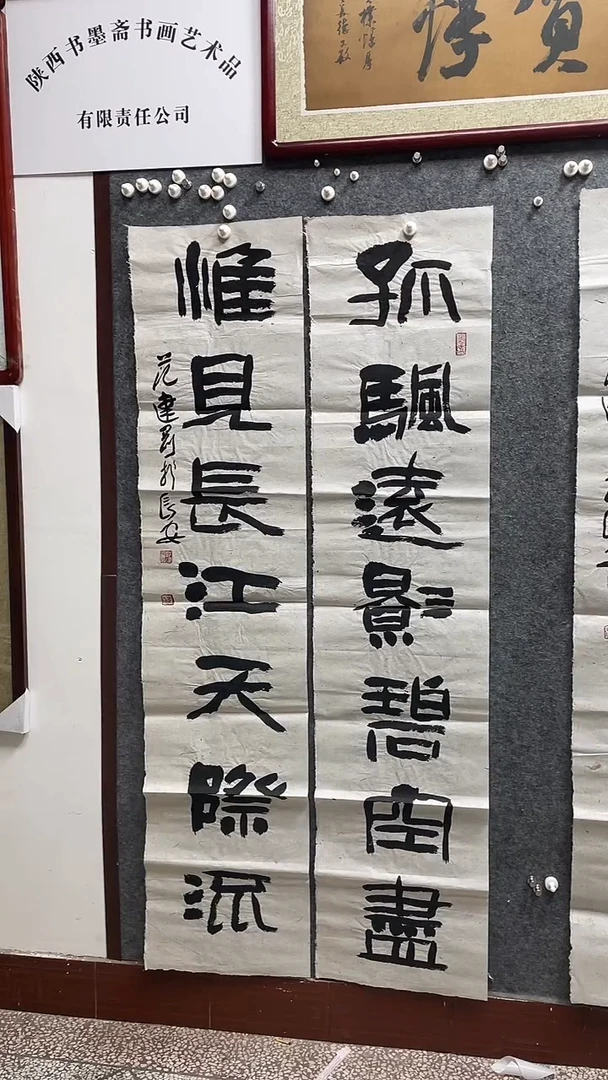 陕西书墨斋书画艺术品
有限责任公司
孤颿遠影碧空盡
惟見長江天際流
范建 於長安